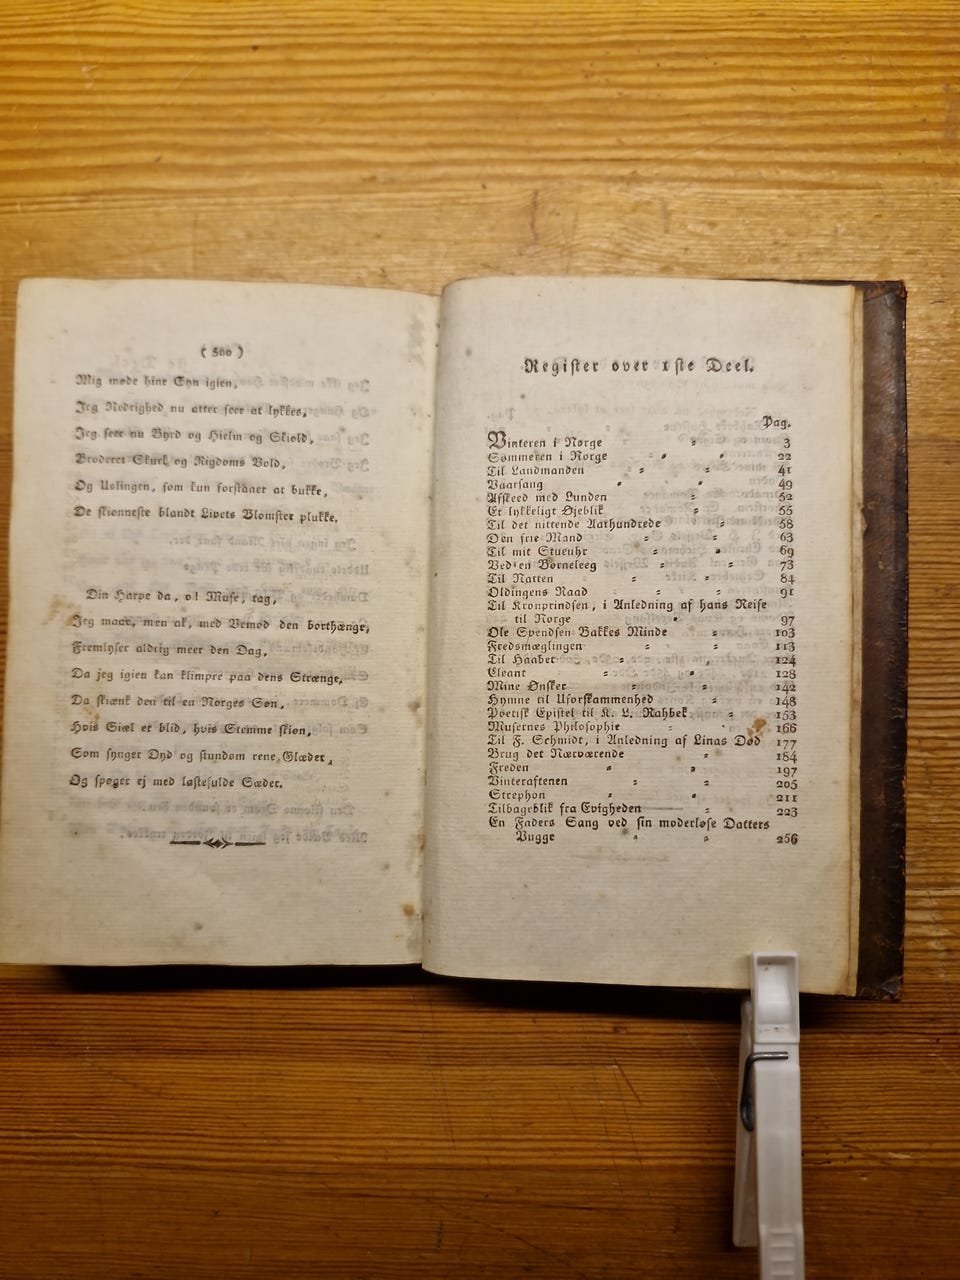 ( 500 )
Mig møde hine Syn igien,
Jeg Nedrighed nu atter seer at lykkes,
Jeg seer nu Byrd og Hielm og Skiold,
Broderet Skurk og Rigdoms Vold,
Og Uslingen, som kun forstaaer at bukke,
De skionneste blandt Livets Blomster plukke.
Din Harpe da, o! Muse, tag,
Jeg maae, men ak, med Vemod den borthænge,
Fremlyser aldrig meer den Dag,
Da jeg igien kan klimpre paa dens Strænge,
Da skiænk den til en Norges Søn,
Hvis Siæl er blid, hvis Stemme skion,
Som synger Dyd og stundom rene Glæder,
Og spøger ej med lastefulde Sæder.
Register over 1ste Deel.
Pag.
Vinteren i Norge = 3
Sommeren i Norge = = 22
Til Landmanden = = 41
Vaarsang = = 49
Afskeed med Lunden = 52
Et lykkeligt Øjeblik = 55
Til det nittende Aarhundrede = 58
Den frie Mand = = 63
Til mit Stueuhr = = 69
Ved en Borneleeg = = 73
Til Natten = = 84
Oldingens Raad = = 91
Til Kronprindsen, i Anledning af hans Reise
til Norge = 97
Ole Svendsen Bakkes Minde = 103
Fredsmæglingen = = 113
Til Haabet = = 124
Cleant = = 128
Mine Ønsker = = 142
Hymne til Uforskammenhed = 148
Poetisk Epistel til K. L. Rahbek = 153
Musernes Philosophie = = 166
Til F. Schmidt, i Anledning af Linas Død 177
Brug det Nærværende = 184
Freden = = 197
Vinteraftenen = = 205
Strephon = = 211
Tilbageblik fra Evigheden = 223
En Faders Sang ved sin moderløse Datters
Vugge = = 256